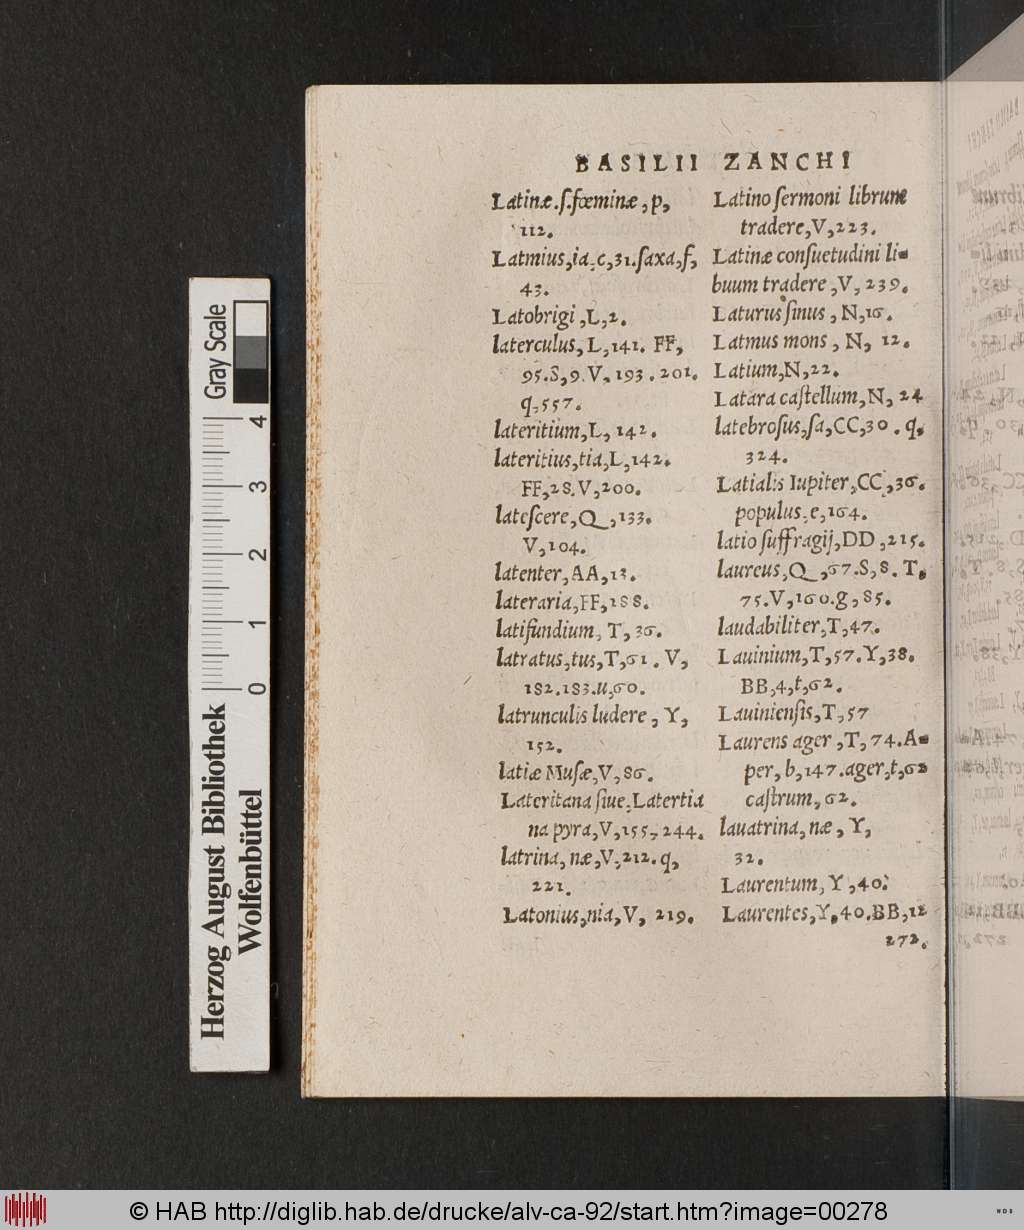 BASILII ZANCHI
Latinæ.ſ.fœminæ, p,
112.
Latmius, ia, c, 31. ſaxa, ſ,
43.
Latobrigi, L, 2.
laterculus, L, 141. FF,
95. S, 9. V, 193. 201.
q, 557.
lateritium, L, 142.
lateritius, tia, L, 142.
FF, 28. V, 200.
lateſcere, Q, 133.
V, 104.
latenter, AA, 13.
lateraria, FF, 188.
latifundium, T, 36.
latratus, tus, T, 61. V,
182. 183. u, 60.
latrunculis ludere, Y,
152.
latiæ Muſæ, V, 86.
Lateritana ſiue, Latertia
na pyra, V, 155, 244.
latrina, næ, V, 212. q,
221.
Latonius, nia, V, 219.
Latino ſermoni librum
tradere, V, 223.
Latinæ conſuetudini li-
buum tradere, V, 239.
Laturus ſinus, N, 16.
Latmus mons, N, 12.
Latium, N, 22.
Latara caſtellum, N, 24
latebroſus, ſa, CC, 30. q,
324.
Latialis Iupiter, CC, 36.
populus, e, 164.
latio ſuffragij, DD, 215.
laureus, Q, 67. S, 8. T,
75. V, 160. g, 85.
laudabiliter, T, 47.
Lauinium, T, 57. Y, 38.
BB, 4, t, 62.
Lauinienſis, T, 57
Laurens ager, T, 74. A-
per, b, 147. ager, t, 62
caſtrum, 62.
lauatrina, næ, Y,
32.
Laurentum, Y, 40.
Laurentes, Y, 40. BB, 12
272.
Gray Scale
4
3
2
1
0
Herzog August Bibliothek
Wolfenbüttel
© HAB http://diglib.hab.de/drucke/alv-ca-92/start.htm?image=00278